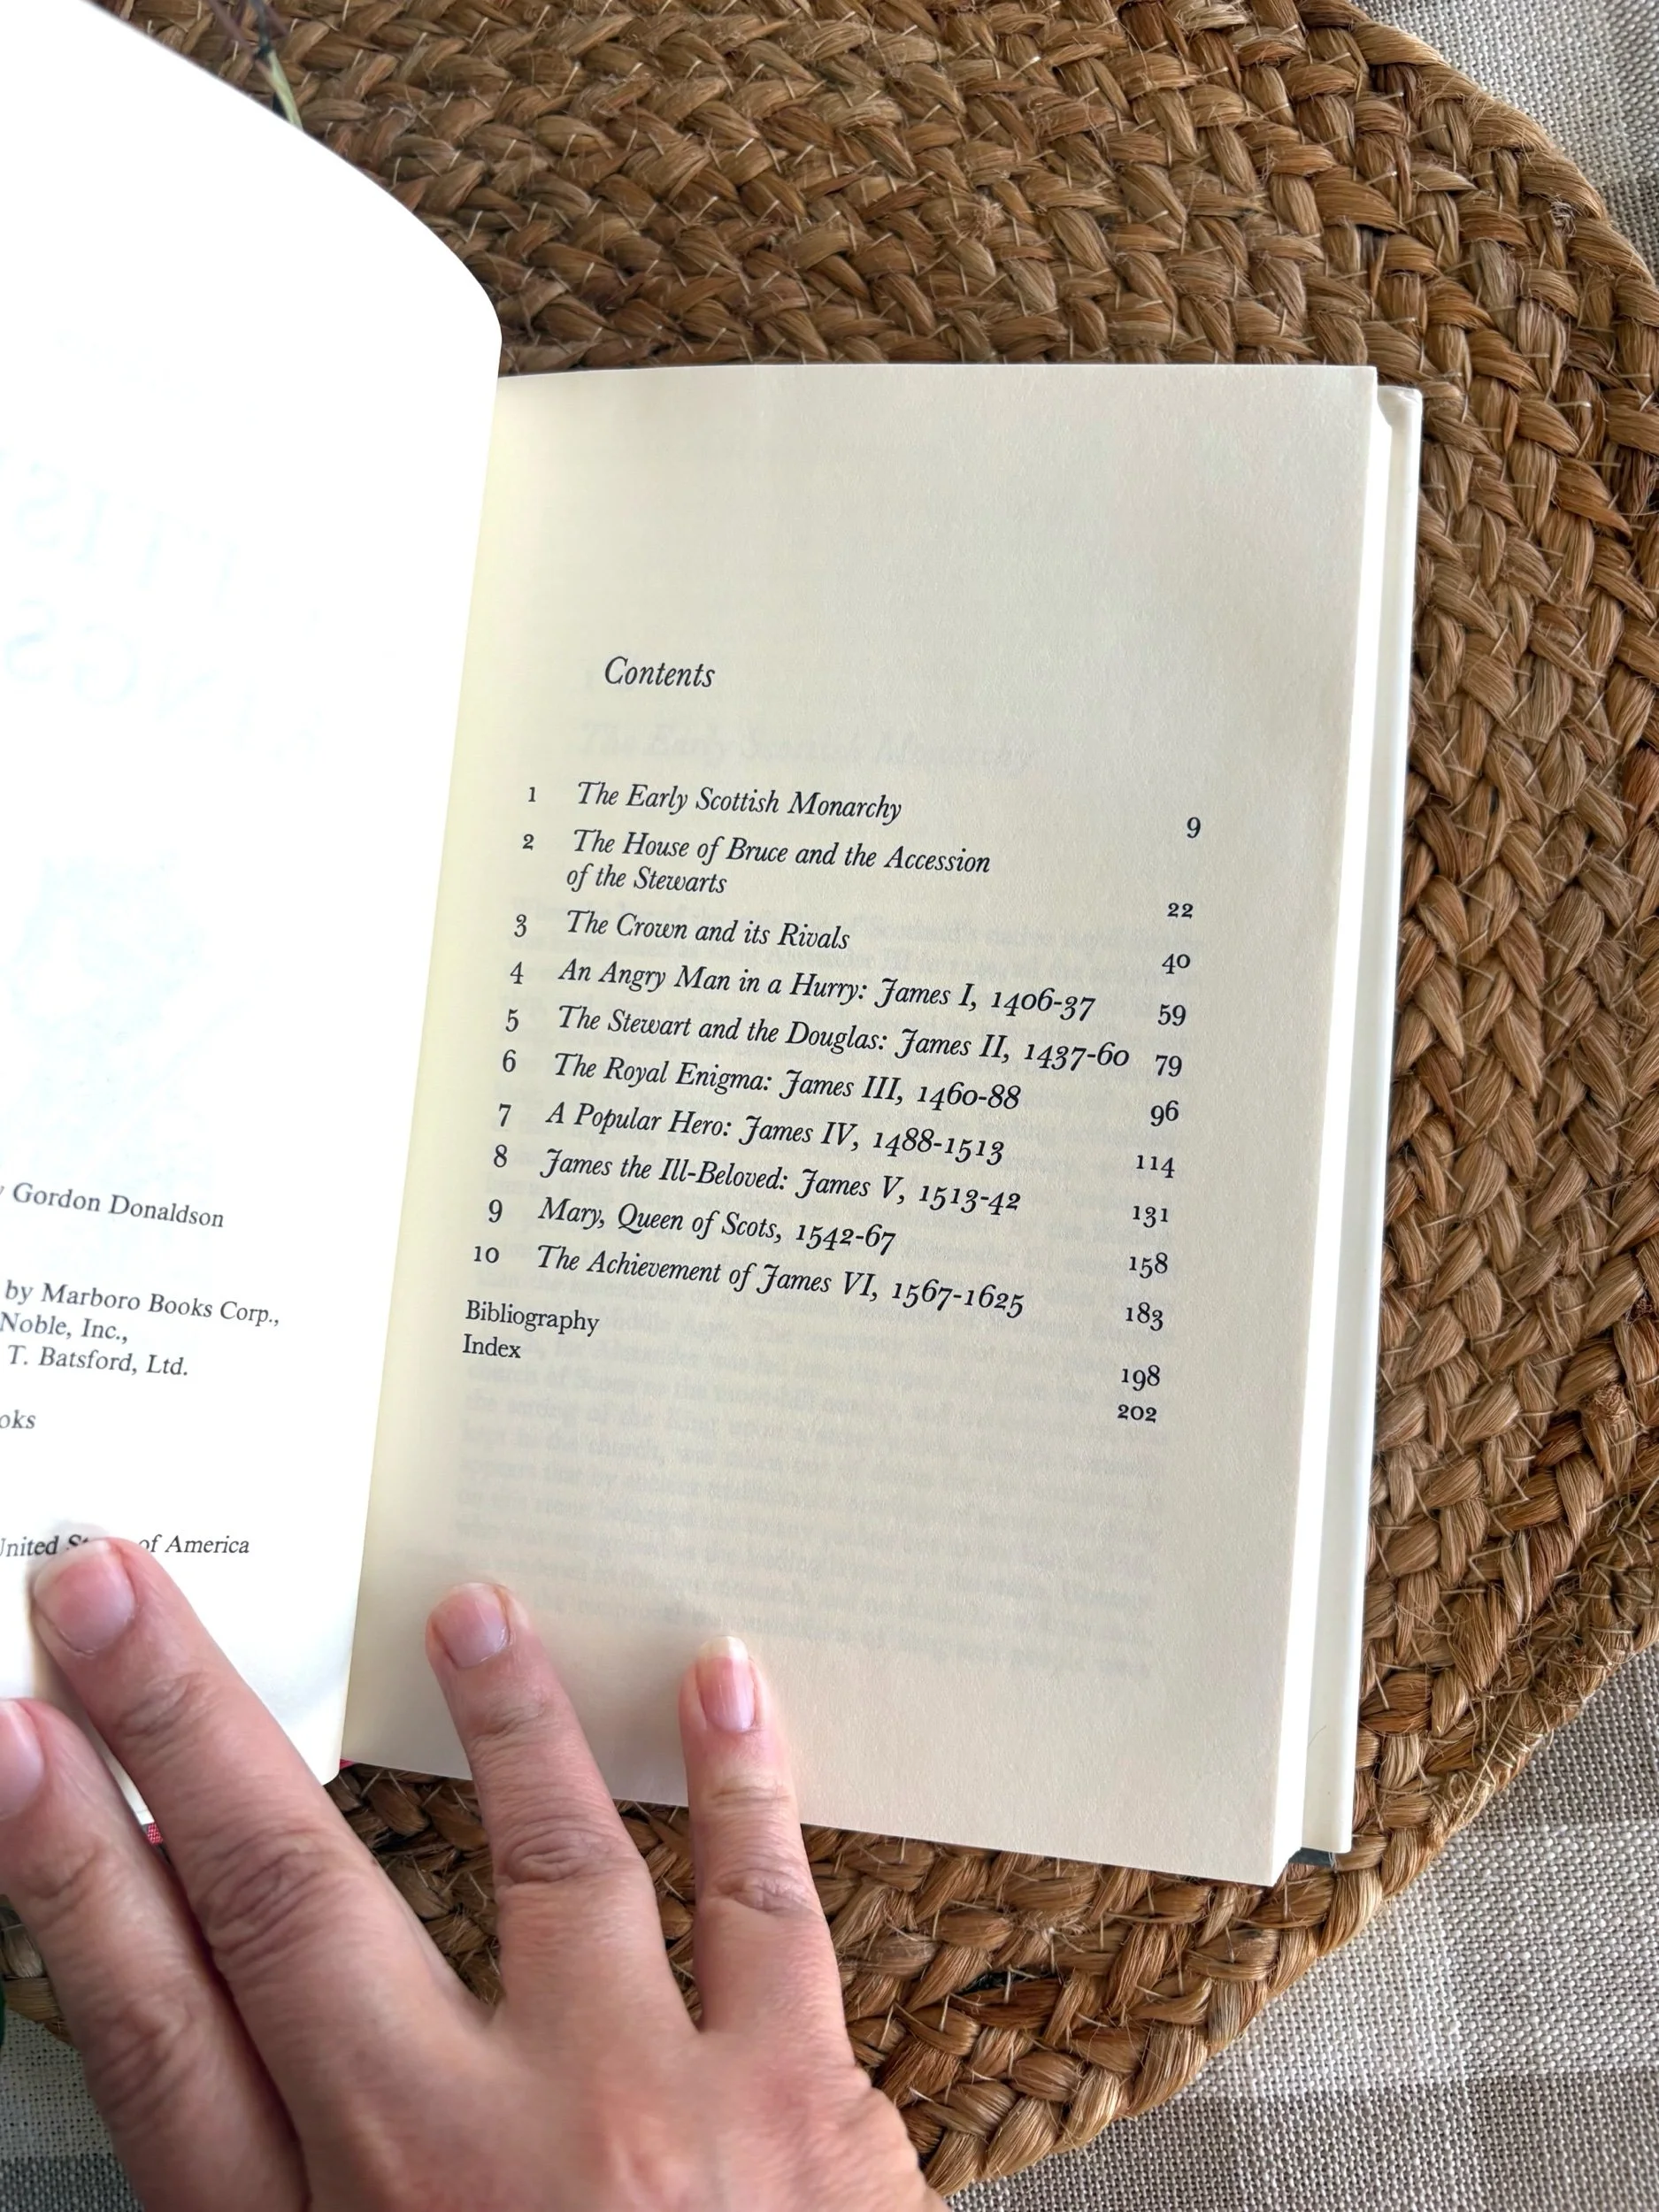 Gordon Donaldson
by Marboro Books Corp.,
Noble, Inc.,
T. Batsford, Ltd.
of America
Contents
1 The Early Scottish Monarchy 9
2 The House of Bruce and the Accession
of the Stewarts 22
3 The Crown and its Rivals 40
4 An Angry Man in a Hurry: James I, 1406-37 59
5 The Stewart and the Douglas: James II, 1437-60 79
6 The Royal Enigma: James III, 1460-88 96
7 A Popular Hero: James IV, 1488-1513 114
8 James the Ill-Beloved: James V, 1513-42 131
9 Mary, Queen of Scots, 1542-67 158
10 The Achievement of James VI, 1567-1625 183
Bibliography 198
Index 202